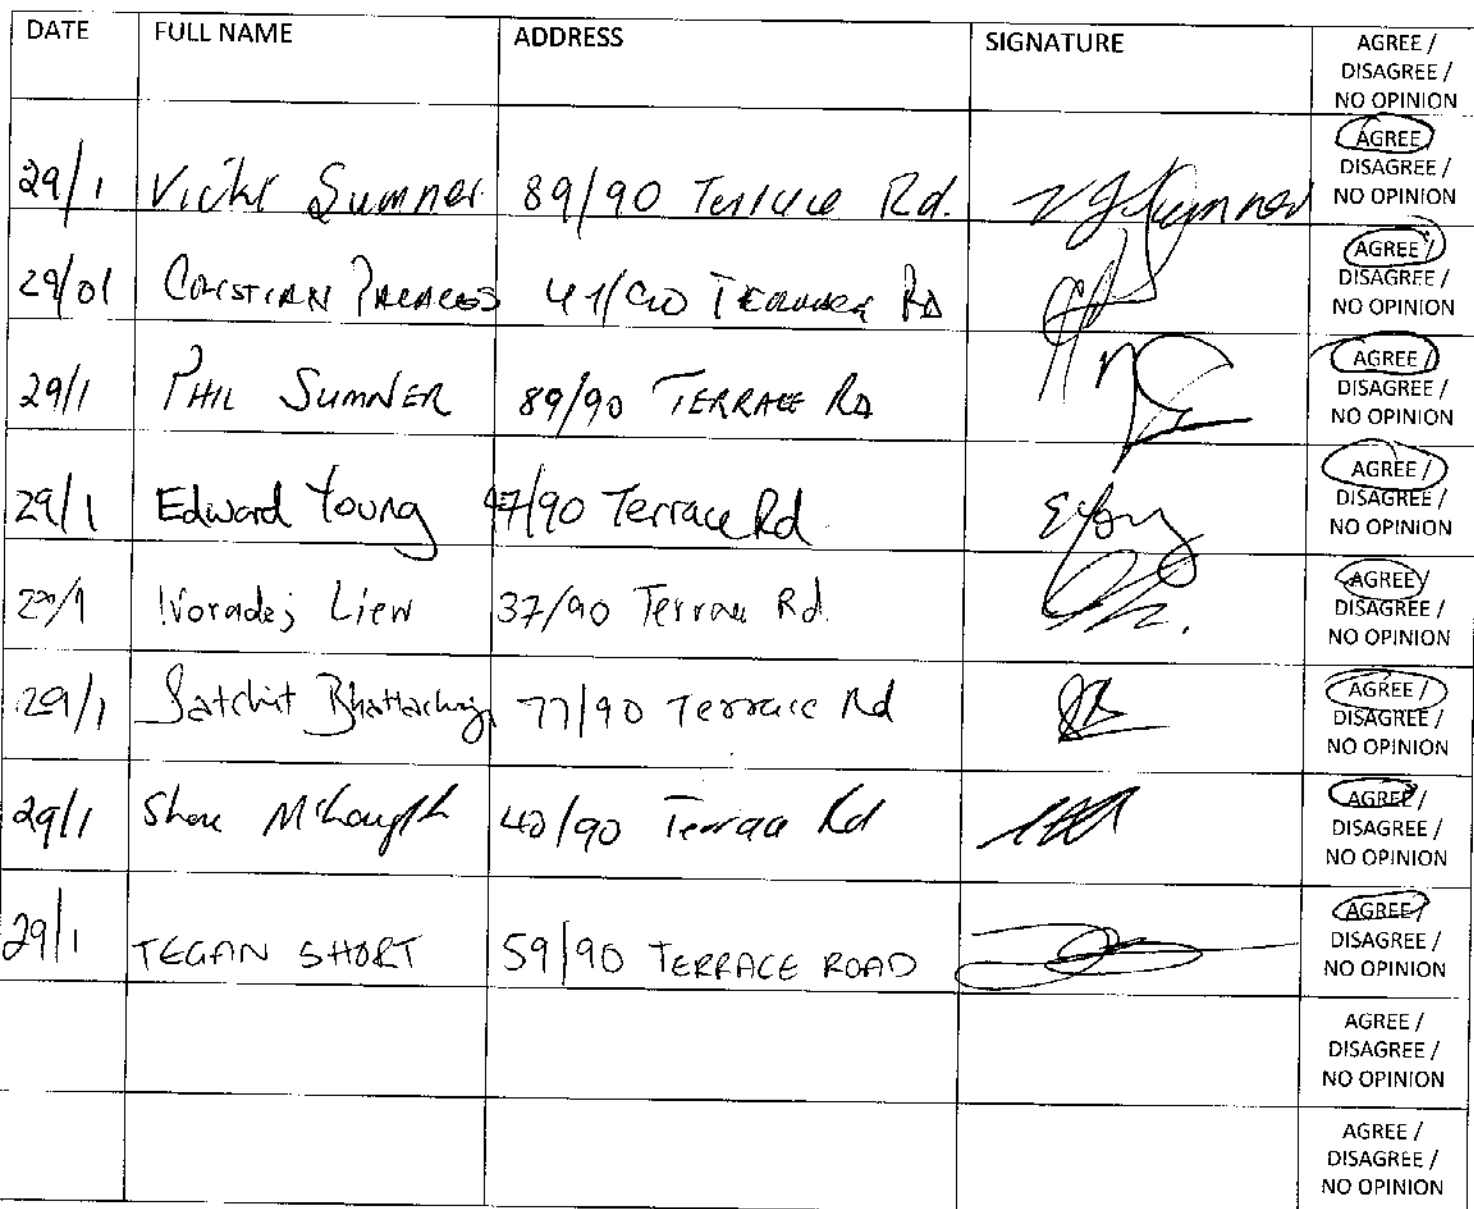 DATE FULL NAME ADDRESS SIGNATURE AGREE /
DISAGREE /
NO OPINION
29/1 Vicki Sumner 89/90 Terrace Rd. VJSumner AGREE
DISAGREE /
NO OPINION
29/01 CRISTIAN PALACIOS 41/90 TERRACE RD AGREE /
DISAGREE /
NO OPINION
29/1 PHIL SUMNER 89/90 TERRACE RD AGREE /
DISAGREE /
NO OPINION
29/1 Edward Young 47/90 Terrace Rd EYoung AGREE /
DISAGREE /
NO OPINION
29/1 Voradej Liew 37/90 Terrace Rd. AGREE /
DISAGREE /
NO OPINION
29/1 Satchit 77/90 Terrace Rd AGREE /
DISAGREE /
NO OPINION
29/1 Shane 40/90 Terrace Rd AGREE /
DISAGREE /
NO OPINION
29/1 TEGAN SHORT 59/90 TERRACE ROAD AGREE /
DISAGREE /
NO OPINION
AGREE /
DISAGREE /
NO OPINION
AGREE /
DISAGREE /
NO OPINION